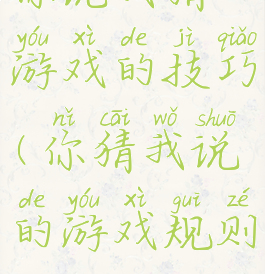 yóu xì de jì qiǎo
游戏的技巧
nǐ cāi wǒ shuō
(你猜我说
de yóu xì guī zé
的游戏规则